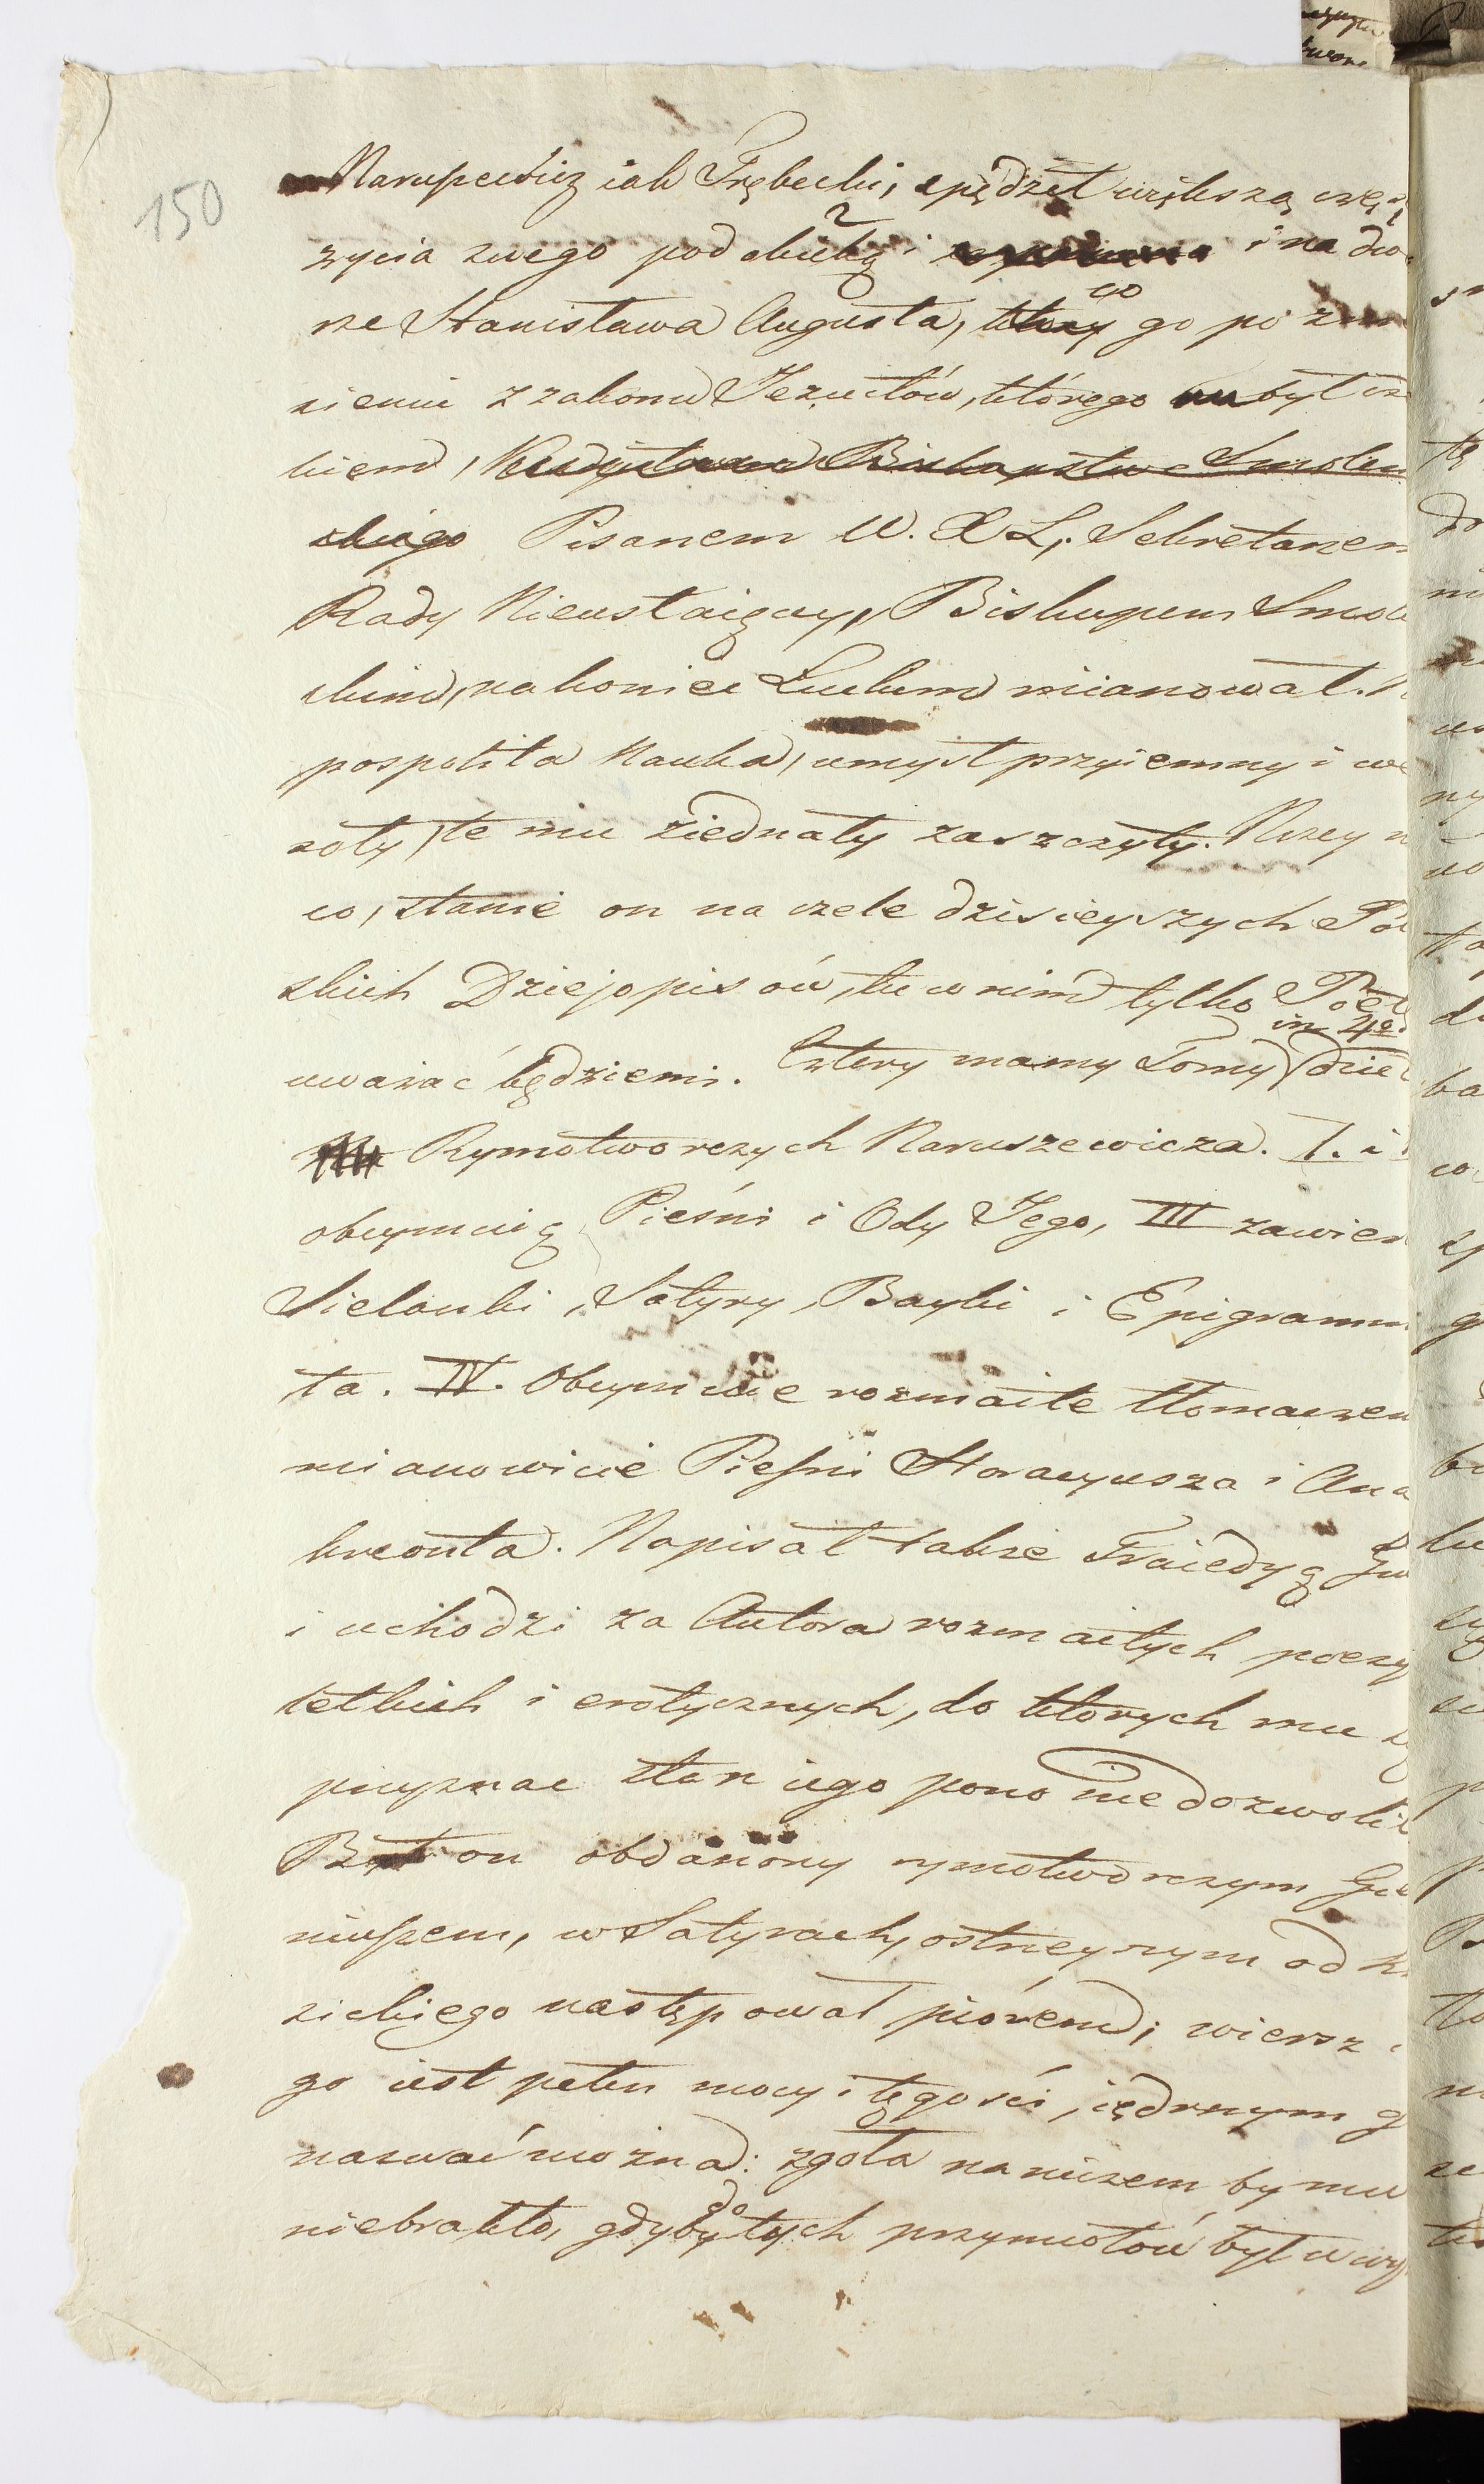 150
Naruszewicz iak Trębecki, spędził większą częś
życia swego pod okiem i na dwo
rze Stanisława Augusta, który co go po znie
sieniu z zakonu Jezuitów, którego był cz
kiem, Koadjutorem Biskupstwa Smoleń
skiego Pisarzem W. X L, Sekretarzem
Rady Nieustaiącey, Biskupem Smole
skim, nakoniec Łuckim mianował. N
pospolita Nauka, umysł przyiemny i we
soły, te mu ziednały zaszczyty. Niżey n
co, stanie on na czele dzisieyszych Pol
skich Dziejopisów, tu w nim tylko Poetę
uważać będziemi. Cztery mamy Tomy in 4o. dzieł
Rymotworczych Naruszewicza. I. i
obeymuią Pieśni i Ody Jego, III zawier
Sielanki, Satyry, Bayki i Epigramma
ta. IV. Obeymuie rozmaite tłomaczen
mianowicie Pieśni Horacyusza i Ana
kreonta. Napisał także Traiedyą Gw
i uchodzi za Autora rozmaitych poezy
letkich i erotycznych, do których mu s
przyznac stan iego pono nie dozwolił
Był on obdarzony rymotworczym Ge
niuszem, w Satyrach, ostrzeyszym od Kra
sickiego następował piórem; wiersz i
go iest pełen mocy i tęgości, iędrnym g
nazwać można: zgoła na niczem by mu
niebrakło, gdyby do tych przymiotów był w wy